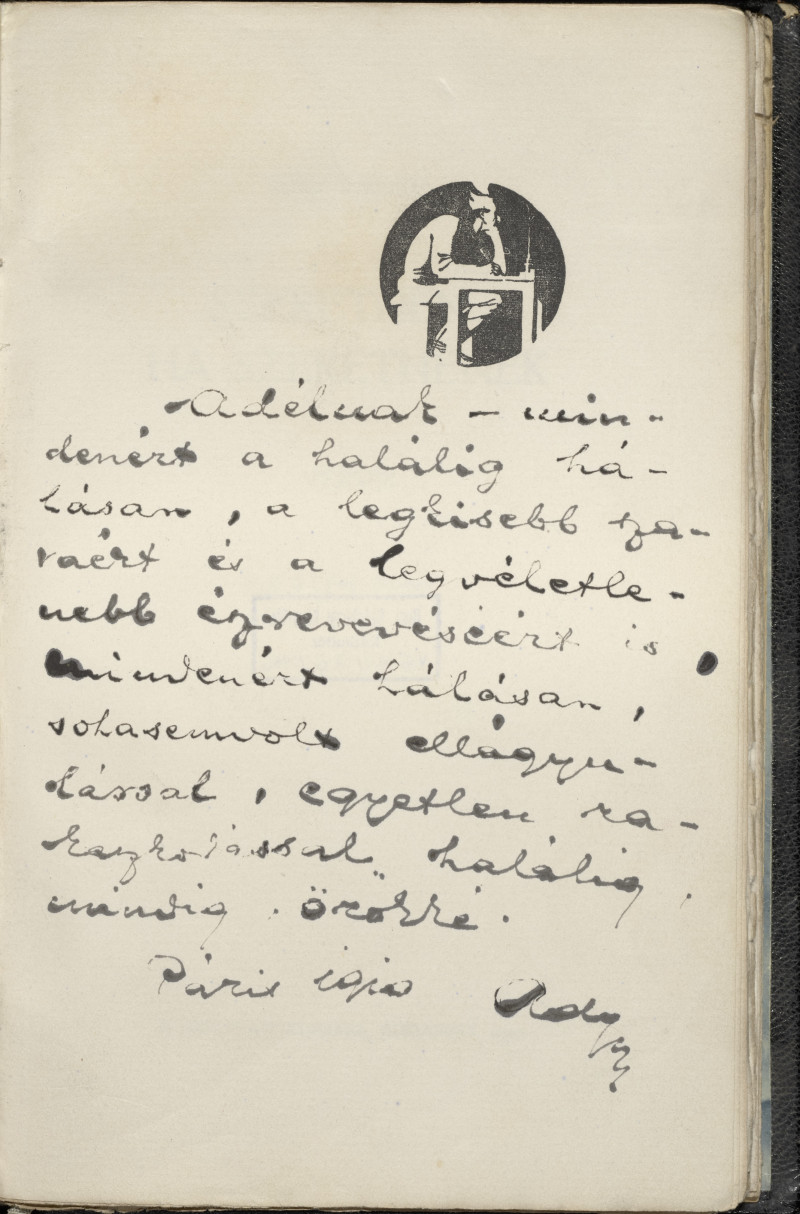 Adélnak – min-
denért a halálig há-
lásan, a legkisebb sza-
váért és a legvéletle-
nebb észrevevéséért is,
mindenért hálásan,
sohasemvolt ellágyu-
lással, egyetlen ra-
kaszkodással, halálig,
mindig. örökké.
Páris 1910 Ady